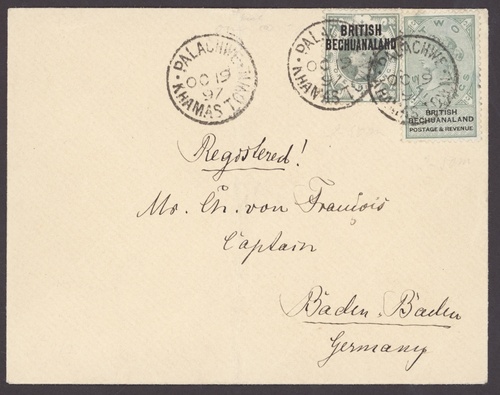 PALACHWE - KHAMAS TOWN
OC 19
97
BRITISH
BECHUANALAND
PALACHWE - KHAMAS TOWN
OC 19
97
TWO
BRITISH
BECHUANALAND
POSTAGE & REVENUE
Registered!
Mr. Ch. von François
Captain
Baden-Baden
Germany